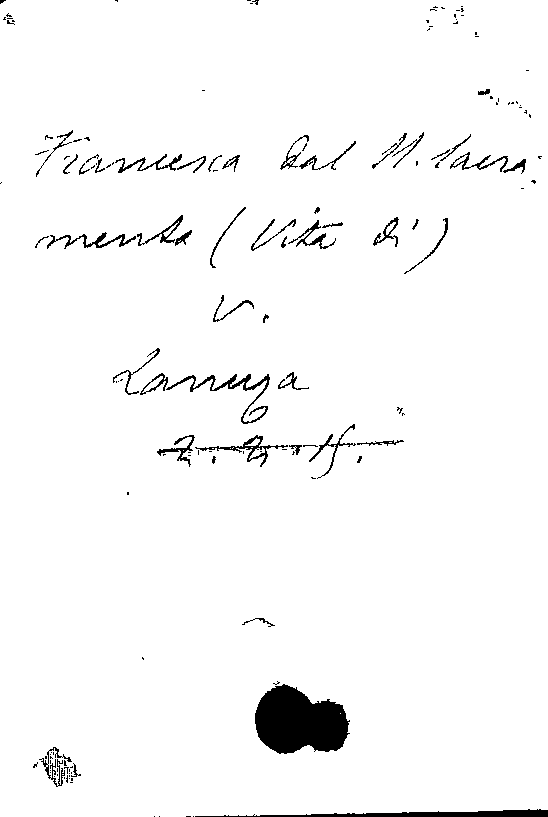 Francesca dal SS. Sacra-
mento (Vita di)
V.
Lanuza
2. 2. 15.